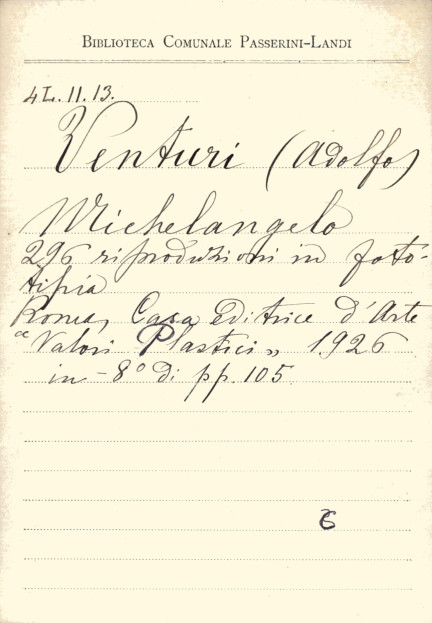 BIBLIOTECA COMUNALE PASSERINI-LANDI
4L.II.13.
Venturi (Adolfo)
Michelangelo
296 riproduzioni in foto-
tipia
Roma, Casa Editrice d'Arte
"Valori Plastici" 1926
in-8° di pp. 105